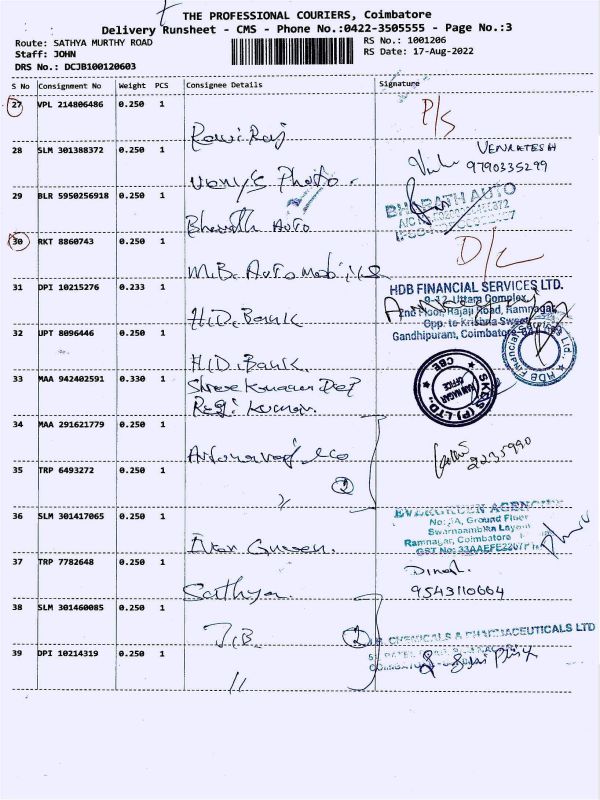 THE PROFESSIONAL COURIERS, Coimbatore
Delivery Runsheet - CMS - Phone No.:0422-3505555 - Page No.:3
Route: SATHYA MURTHY ROAD
RS No.: 1001206
Staff: JOHN
RS Date: 17-Aug-2022
DRS No.: DCJB100120603
S No Consignment No Weight PCS Consignee Details Signature
27 VPL 214806486 0.250 1 P/S
28 SLM 301388372 0.250 1 VENKATESH
9790335299
Photo
29 BLR 5950256918 0.250 1 BHARATH AUTO
Bharath Auto
30 RKT 8860743 0.250 1 D/L
M.B. Automobiles
31 DPI 10215276 0.233 1 HDB FINANCIAL SERVICES LTD.
9-12, Uttam Complex,
2nd Floor, Rajaji Road, Ramnagar
Opp. to Krishna Sweet
Gandhipuram, Coimbatore
H.D. Bank
32 JPT 8096446 0.250 1
H.D. Bank
33 MAA 942402591 0.330 1
34 MAA 291621779 0.250 1
2235990
35 TRP 6493272 0.250 1 2
"
36 SLM 301417065 0.250 1 EVERGREEN AGENCY
No: Ground Floor
Swarnaambika Layout
Ramnagar, Coimbatore
GST No: 33AAEFE2267
Ever Green
37 TRP 7782648 0.250 1
9543110664
Sathya
38 SLM 301460085 0.250 1
CHEMICALS & PHARMACEUTICALS LTD
39 DPI 10214319 0.250 1
"